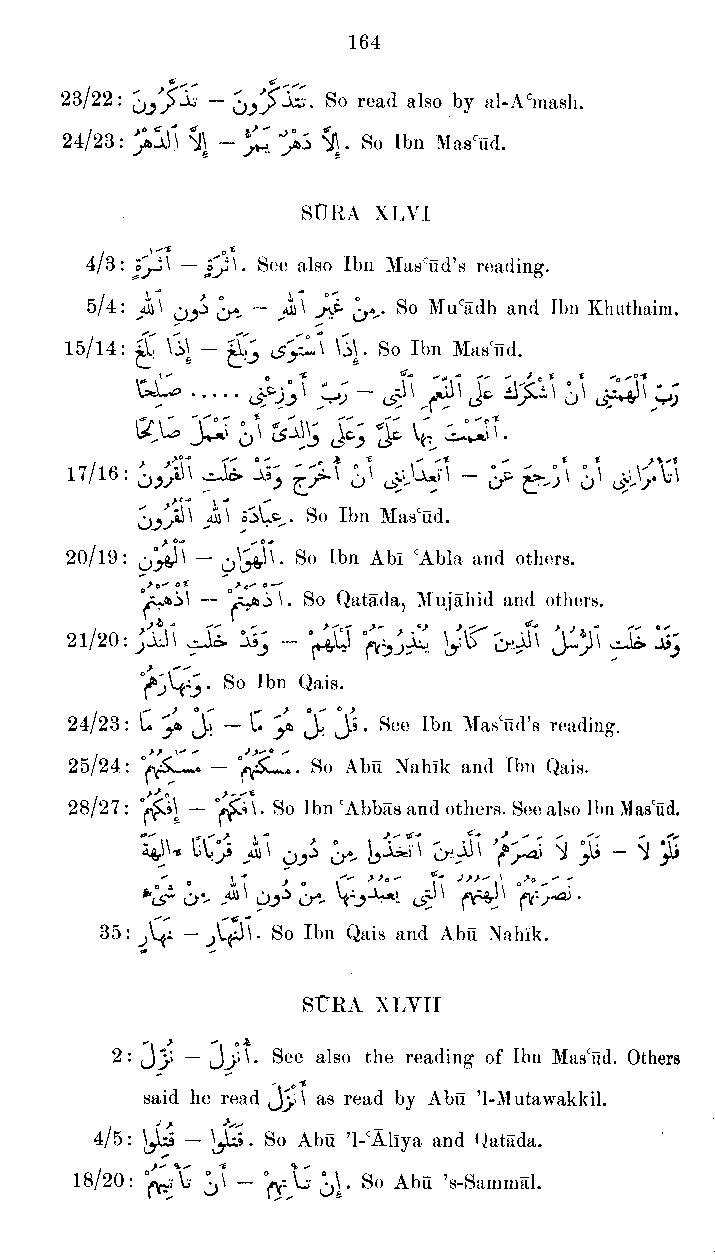 164
23/22: تَذَكَّرُونَ – تَتَذَكَّرُونَ. So read also by al-Aʿmash.
24/23: إِلاَّ ٱلدَّهْرُ – إِلاَّ دَهْرٌ يَمُرُّ. So Ibn Masʿūd.
SŪRA XLVI
4/3: أَثَٰرَةٍ – أَثْرَةٍ. See also Ibn Masʿūd's reading.
5/4: مِنْ دُونِ ٱللهِ – مِنْ غَيْرِ ٱللهِ. So Muʿādh and Ibn Khuthaim.
15/14: إِذَا بَلَغَ – إِذَا ٱسْتَوَى وَبَلَغَ. So Ibn Masʿūd.
رَبِّ أَوْزِعْنِى ..... صَٰلِحًا – رَبِّ أَلْهَمْتَنِى أَنْ أَشْكُرَكَ عَلَى ٱلنِّعَمِ ٱلَّتِى
أَنْعَمْتَ بِهَا عَلَىَّ وَعَلَى وَالِدَىَّ أَنْ نَعْمَلَ صَالِحًا.
17/16: أَتَعِدَانِنِى أَنْ أُخْرَجَ وَقَدْ خَلَتِ ٱلْقُرُونُ – أَتَأْمُرَانِنِى أَنْ أَرْجِعَ عَنْ
عِبَادَةِ ٱللهِ ٱلْقُرُونَ. So Ibn Masʿūd.
20/19: ٱلْهُوْنِ – ٱلْهَوَانِ. So Ibn Abī ʿAbla and others.
أَذْهَبْتُمْ – آذْهَبْتُمْ. So Qatāda, Mujāhid and others.
21/20: وَقَدْ خَلَتِ ٱلنُّذُرُ – وَقَدْ خَلَتِ ٱلرُّسُلُ ٱلَّذِينَ كَانُوا يُنْذِرُونَهُمْ لَيْلَهُمْ
وَنَهَارَهُمْ. So Ibn Qais.
24/23: بَلْ هُوَ مَا – قُلْ بَلْ هُوَ مَا. See Ibn Masʿūd's reading.
25/24: مَسَٰكِنُهُمْ – مَسْكَنُهُمْ. So Abū Nahīk and Ibn Qais.
28/27: إِفْكُهُمْ – أَفَكَهُمْ. So Ibn ʿAbbās and others. See also Ibn Masʿūd.
فَلَوْ لاَ نَصَرَهُمُ ٱلَّذِينَ ٱتَّخَذُوا مِنْ دُونِ ٱللهِ قُرْبَانًا ءَالِهَةً – فَلَوْ لاَ
نَصَرَتْهُمْ آلِهَتُهُمُ ٱلَّتِى يَعْبُدُونَهَا مِنْ دُونِ ٱللهِ مِنْ شَىْءٍ.
35: نَهَارٍ – ٱلنَّهَارِ. So Ibn Qais and Abū Nahīk.
SŪRA XLVII
2: نُزِّلَ – أُنْزِلَ. See also the reading of Ibn Masʿūd. Others
said he read أَنْزَلَ as read by Abū 'l-Mutawakkil.
4/5: قُتِلُوا – قُتِّلُوا. So Abū 'l-ʿĀlīya and Qatāda.
18/20: أَنْ تَأْتِيَهُمْ – إِنْ تَأْتِهِمْ. So Abū 's-Sammāl.